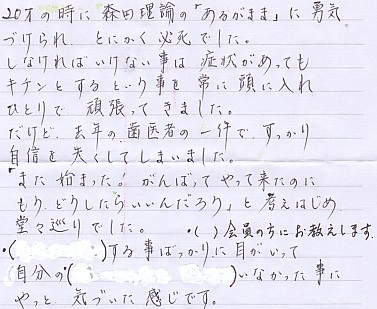 20才の時に森田理論の「あるがまま」に勇気
づけられ、とにかく必死でした。
しなければいけない事は 症状があっても
キチンとするという事を常に頭に入れ
ひとりで 頑張ってきました。
だけど、去年の歯医者の一件で、すっかり
自信を失くしてしまいました。
「また始まった！がんばってやって来たのに
もう、どうしたらいいんだろう」と考えはじめ
堂々巡りでした。 •( )会員の方にお教えします。
•( )する事ばっかりに目がいって
(自分の•( )いなかった事に
やっと、気づいた感じです。